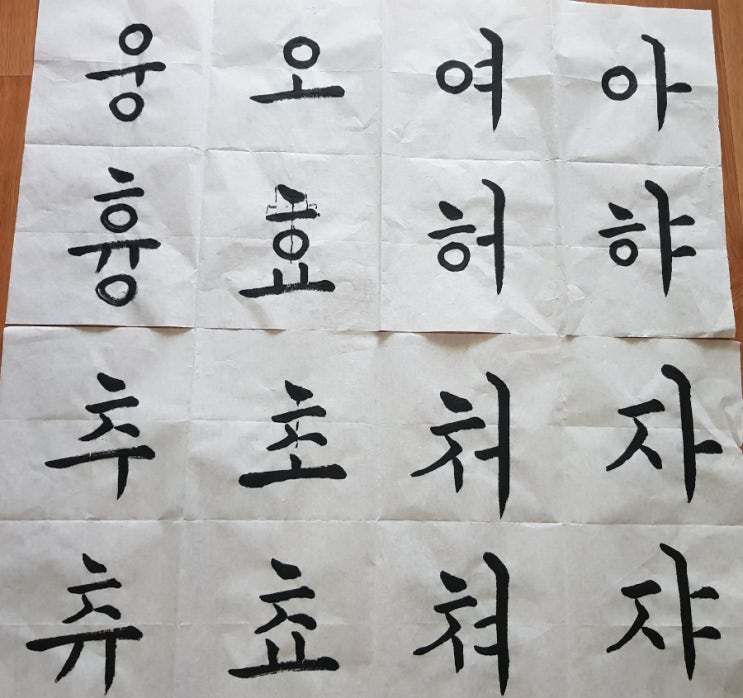 웅 오 여 아
흉 효 허 햐
추 초 처 자
츄 쵸 쳐 쟈